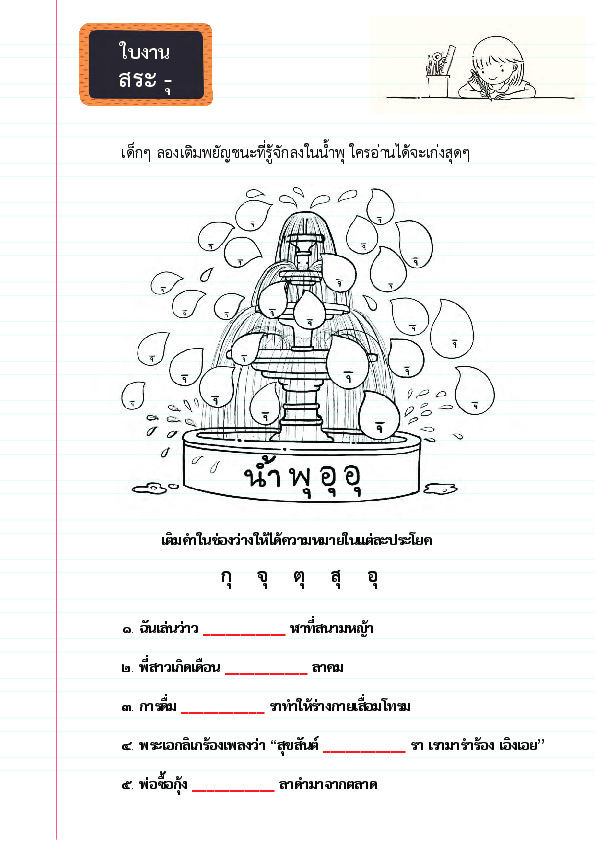 ใบงาน
สระ -ุ
เด็กๆ ลองเติมพยัญชนะที่รู้จักลงในน้ำพุ ใครอ่านได้จะเก่งสุดๆ
น้ำ พุ อุ อุ
เติมคำในช่องว่างให้ได้ความหมายในแต่ละประโยค
กุ จุ ตุ สุ อุ
๑. ฉันเล่นว่าว ____________ ฬาที่สนามหญ้า
๒. พี่สาวเกิดเดือน ____________ ลาคม
๓. การดื่ม ____________ ราทำให้ร่างกายเสื่อมโทรม
๔. พระเอกลิเกร้องเพลงว่า “สุขสันต์ ____________ รา เรามารำร้อง เอิงเอย”
๕. พ่อซื้อกุ้ง ____________ ลาดำมาจากตลาด